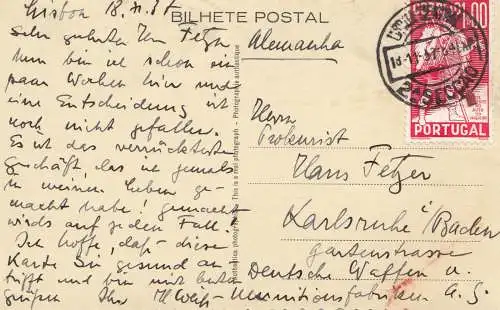 Lissabon 18.XI.37
BILHETE POSTAL
Sehr geehrter Herr Fetzer
Nun bin ich schon ein
paar Wochen hier und
eine Entscheidung ist
noch nicht gefallen.
Es ist das verrückteste
Geschäft, das ich jemals
in meinem Leben ge-
macht habe! gemacht
wirds auf jeden Fall!
Ich hoffe, daß diese
Karte Sie gesund an-
trifft und bin mit besten
Grüßen Ihr
Alemanha
Herrn
Prokurist
Hans Fetzer
Karlsruhe/Baden
Gartenstrasse
Deutsche Waffen u.
Munitionsfabriken A.G.
This is a real photograph - Photographie authentique
1$00
PORTUGAL
2ª SECÇÃO